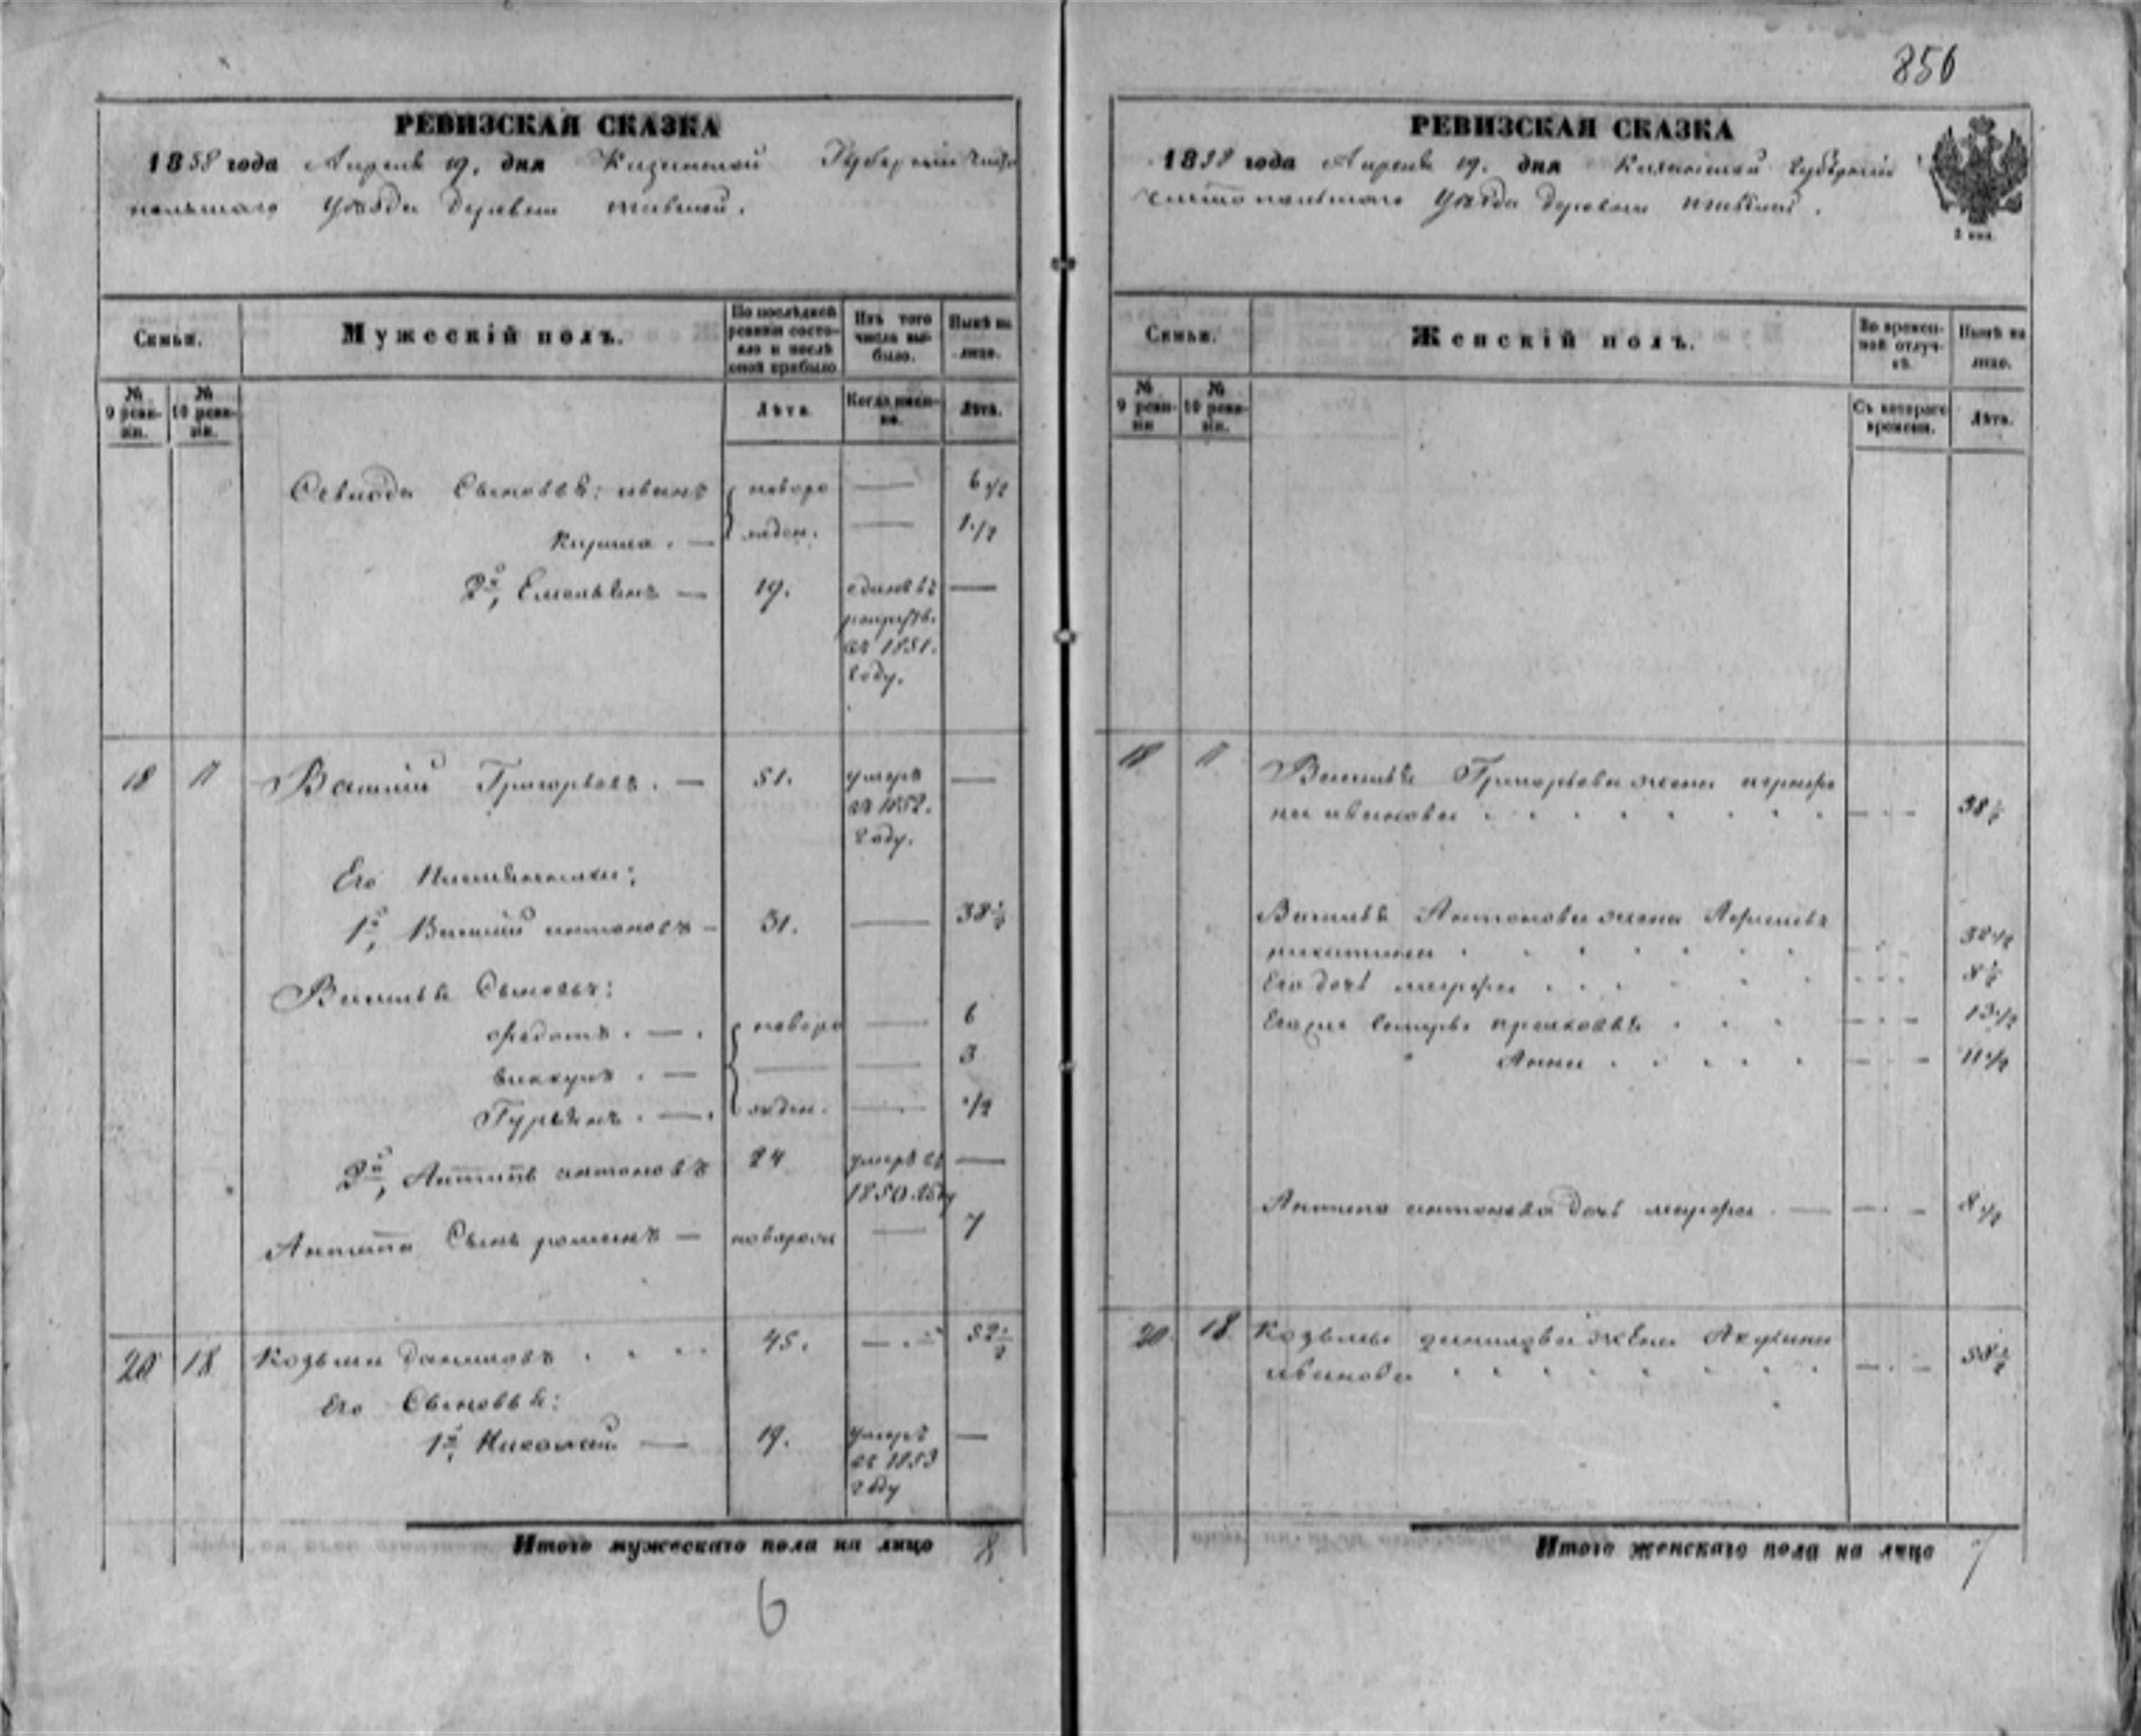 856
РЕВИЗСКАЯ СКАЗКА
1858 года Апреля 19. дня Казанской Губернии Чисто
польскаго Уѣзда деревни
Семьи.
Мужескій полъ.
По послѣдней ревизіи состояло и послѣ оной прибыло
Изъ того числа выбыло.
Нынѣ на лицо.
№ 9 ревизіи.
№ 10 ревизіи.
Лѣта.
Когда именно.
Лѣта.
Сыновья: иванъ новоро 6 1/2
Кирила. ждон. 1 1/2
2й, Емельянъ 19. сданъ въ
рекруты
въ 1851.
году.
18 17 Василій Григорьевъ. 51. умеръ
въ 1852.
году.
Его Племянники:
1й, Василій антоновъ 31. 38 1/2
Василья Сыновья:
федотъ. новоро 6
викулъ. 3
Гурьянъ. жден. 1/2
2й, Антипъ антоновъ 24 умеръ въ
1850 году
Антипа Сынъ романъ новорож 7
20 18 Козьма даниловъ 45. 52 1/2
Его Сыновья:
1й, Николай 19. умеръ
въ 1853
году
Итого мужескаго пола на лицо 8
6
РЕВИЗСКАЯ СКАЗКА
1858 года Апреля 19. дня Казанской губерніи
Чистопольскаго Уѣзда деревни
Семьи.
Женскій полъ.
Во временной отлучкѣ.
Нынѣ на лицо.
№ 9 ревизіи
№ 10 ревизіи.
Съ котораго времени.
Лѣта.
18 17 Василья Григорьева жена аграфе
на иванова 38 1/2
Василья Антонова жена
никитина 32 1/2
Его дочь марфа 8 1/2
Его же Сестры прасковья 13 1/2
Анна 11 1/2
Антипа антонова дочь марфа 8 1/2
20. 18. Козьмы данилова жена Акулина
иванова 58 1/2
Итого женскаго пола на лицо 7